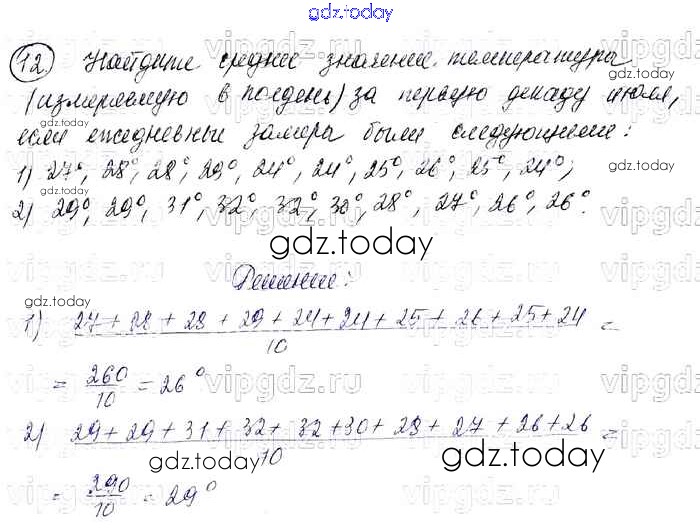 gdz.today
12. Найдите среднее значение температуры
(измеряемую в полдень) за первую декаду июля,
если ежедневные замеры были следующие:
1) 27°, 28°, 28°, 29°, 24°, 24°, 25°, 26°, 25°, 24°;
2) 29°, 29°, 31°, 32°, 32°, 30°, 28°, 27°, 26°, 26°.
gdz.today
Решение:
1) 27 + 28 + 28 + 29 + 24 + 24 + 25 + 26 + 25 + 24 =
10
= 260/10 = 26°
2) 29 + 29 + 31 + 32 + 32 + 30 + 28 + 27 + 26 + 26 =
10
= 290/10 = 29°
gdz.today
vipgdz.ru